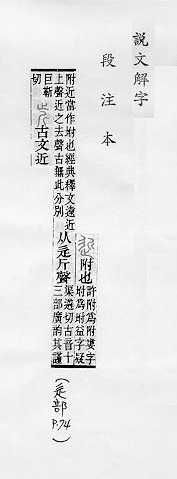 說文解字
段注本
附也
許附爲附婁字
坿爲坿益字疑
附近當作坿也經典釋文遠近
上聲近之去聲古無此分別
从辵斤聲
渠遴切古音十
三部廣韵其謹
巨靳
切
古文近
(辵部 P.74)